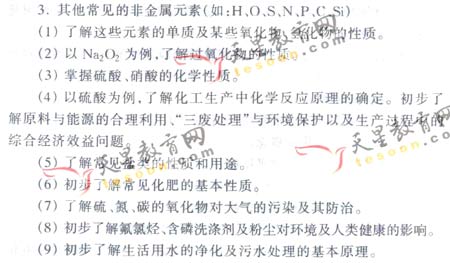 3. 其他常见的非金属元素(如:H、O、S、N、P、C、Si)
(1) 了解这些元素的单质及某些氧化物、氢化物的性质。
(2) 以 Na₂O₂ 为例,了解过氧化物的性质。
(3) 掌握硫酸、硝酸的化学性质。
(4) 以硫酸为例,了解化工生产中化学反应原理的确定。初步了
解原料与能源的合理利用、“三废处理”与环境保护以及生产过程中的
综合经济效益问题
(5) 了解常见盐类的性质和用途。
(6) 初步了解常见化肥的基本性质。
(7) 了解硫、氮、碳的氧化物对大气的污染及其防治。
(8) 初步了解氟氯烃、含磷洗涤剂及粉尘对环境及人类健康的影响。
(9) 初步了解生活用水的净化及污水处理的基本原理。
天星教育网
tesoon.com
天星教育网
tesoon.com
天星教育网
tesoon.com